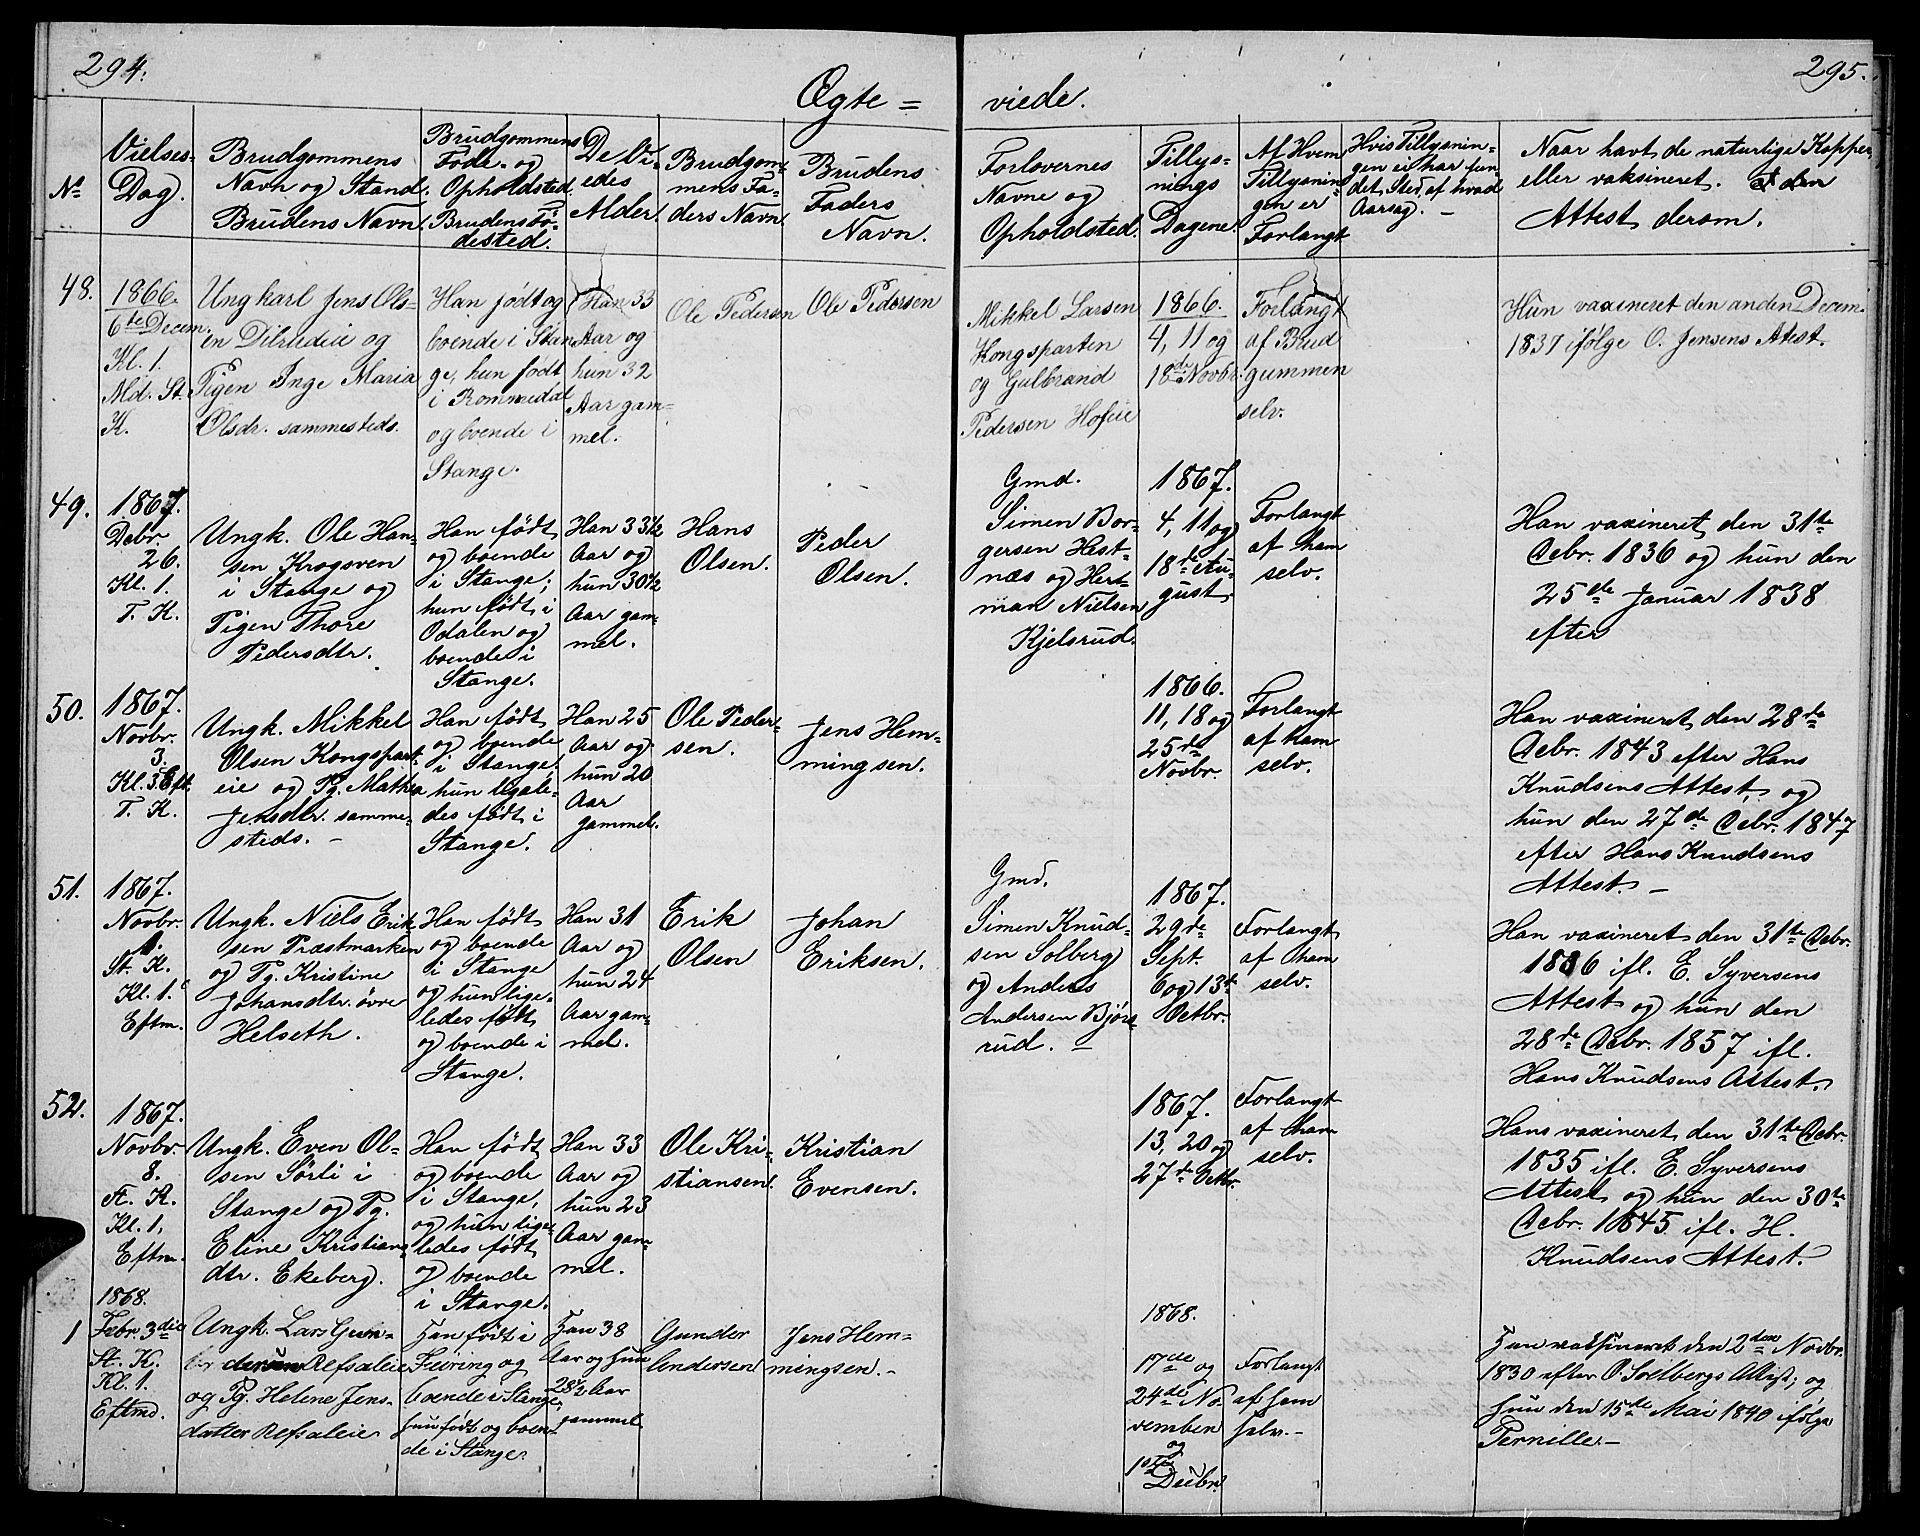 294.
295.
Ægte = viede.
No
Vielses-
Dag.
Brudgommens
Navn og Stand.
Brudens Navn.
Brudgommens
Føde- og
Opholdsted.
Brudens Fø-
dested.
De Vi-
edes
Alder.
Brudgom-
mens Fa-
ders Navn.
Brudens
Faders
Navn.
Forlovernes
Navne og
Opholdsted.
Tillys-
nings
Dagene.
Af Hvem
Tillysnin-
gen er
Forlangt
Hvis Tillysnin-
gen ei har fun
det Sted, af hvad
Aarsag. -
Naar havt de naturlige Kopper,
eller vaksineret. den
Attest derom.
48.
1866.
6te Decem.
Kl. 1.
Md. St.
K.
Ungkarl Jens Ols-
en og
Pigen Inge Maria
Olsdr. sammesteds.
Han født og
boende i Stan
ge, hun født
i Rommedal
og boende i
Stange.
Han 33
Aar og
hun 32
Aar gam-
mel.
Ole Pedersen
Ole Pedersen
Mikkel Larsen
Kongsparten
og Gulbrand
Pedersen Hofeie
1866.
4, 11 og
18de Novbr.
Forlangt
af Brud
gummen
selv.
Hun vaxineret den anden Decem.
1837 ifølge O. Jensens Atest.
49.
1867.
Debr.
26.
Kl. 1.
T. K.
Ungk. Ole Han-
sen Krogsven
i Stange og
Pigen Thore
Pedersdtr.
Han født
og boende
i Stange;
hun født i
Odalen og
boende i
Stange.
Han 33 1/2
Aar og
hun 30 1/2
Aar gam-
mel.
Hans
Olsen.
Peder
Olsen.
Gmd.
Simen Bor-
gersen Hest-
næs og Hert-
man Nielsen
Kjelsrud.
1867.
4, 11 og
18de Au-
gust
Forlangt
af ham
selv.
Han vaxineret den 31te
Debr. 1836 og hun den
25de Januar 1838
efter
50.
1867.
Novbr.
3.
Kl. 3 Eft.
T. K.
Ungk. Mikkel
Olsen Kongspart-
eie og Pg. Mathea
Jensdtr. samme-
steds. -
Han født
og boende
i Stange,
hun ligele-
des født i
Stange.
Han 25
Aar og
hun 20
Aar
gammel.
Ole Peder-
sen.
Jens Hem-
mingsen.
1866.
11, 18 og
25de
Novbr.
Forlangt
af ham
selv.
Han vaxineret den 28de
Debr. 1843 efter Hans
Knudsens Attest, og
hun den 27de Debr. 1847
efter Hans Knudsens
Attest. -
51.
1867.
Novbr.
1.
St. K.
Kl. 1.
Eftm.
Ungk. Niels Erik
sen Præstmarken
og Pg. Kristine
Johansdtr. øvre
Helseth.
Han født
og boende
i Stange
og hun lige-
ledes født
og boende i
Stange.
Han 31
Aar og
hun 24
Aar gam-
mel.
Erik
Olsen
Johan
Eriksen.
Gmd.
Simen Knud-
sen Solberg
og Anders
Andersen Bjørs
rud. -
1867.
29de
Sept.
6 og 13de
Octbr.
Forlangt
af ham
selv.
Han vaxineret den 31te Debr.
1836 ifl. E. Syversens
Attest og hun den
28de Debr. 1857 ifl.
Hans Knudsens Attest.
52.
1867.
Novbr.
8.
St. K.
Kl. 1.
Eftm.
Ungk. Even Ol-
sen Sørli i
Stange og Pg.
Eline Kristians
dtr. Ekeberg.
Han født
og boende
i Stange,
og hun lige-
ledes født
og boende
i Stange.
Han 33
Aar og
hun 23
Aar gam-
mel.
Ole Kri-
stiansen.
Kristian
Evensen.
1867.
13, 20 og
27de Octbr.
Forlangt
af ham
selv.
Hans vaxineret den 31te Debr.
1835 ifl. E. Syversens
Attest og hun den 30te
Debr. 1845 ifl. H.
Knudsens Attest.
1
1868.
Febr. 3die
St. K.
Kl. 1.
Eftmd.
Ungk. Lars Gun-
dersen Refsaleie
og Pg. Helene Jens-
datter Refsaleie
Han født i
Feiring og
boende i Stange,
hun født og boen-
de i Stange.
Han 38
Aar og hun
28 1/2 Aar
gammel
Gunder
Andersen
Jens Hem-
mingsen. -
1868.
17de og
24de No-
vember
og
1ste
Decbr.
Forlangt
af ham
selv. -
Han vaksineret den 2den Novbr.
1830 efter O. Soelbergs Attest; og
hun den 15de Mai 1840 ifølge
Pernille. -